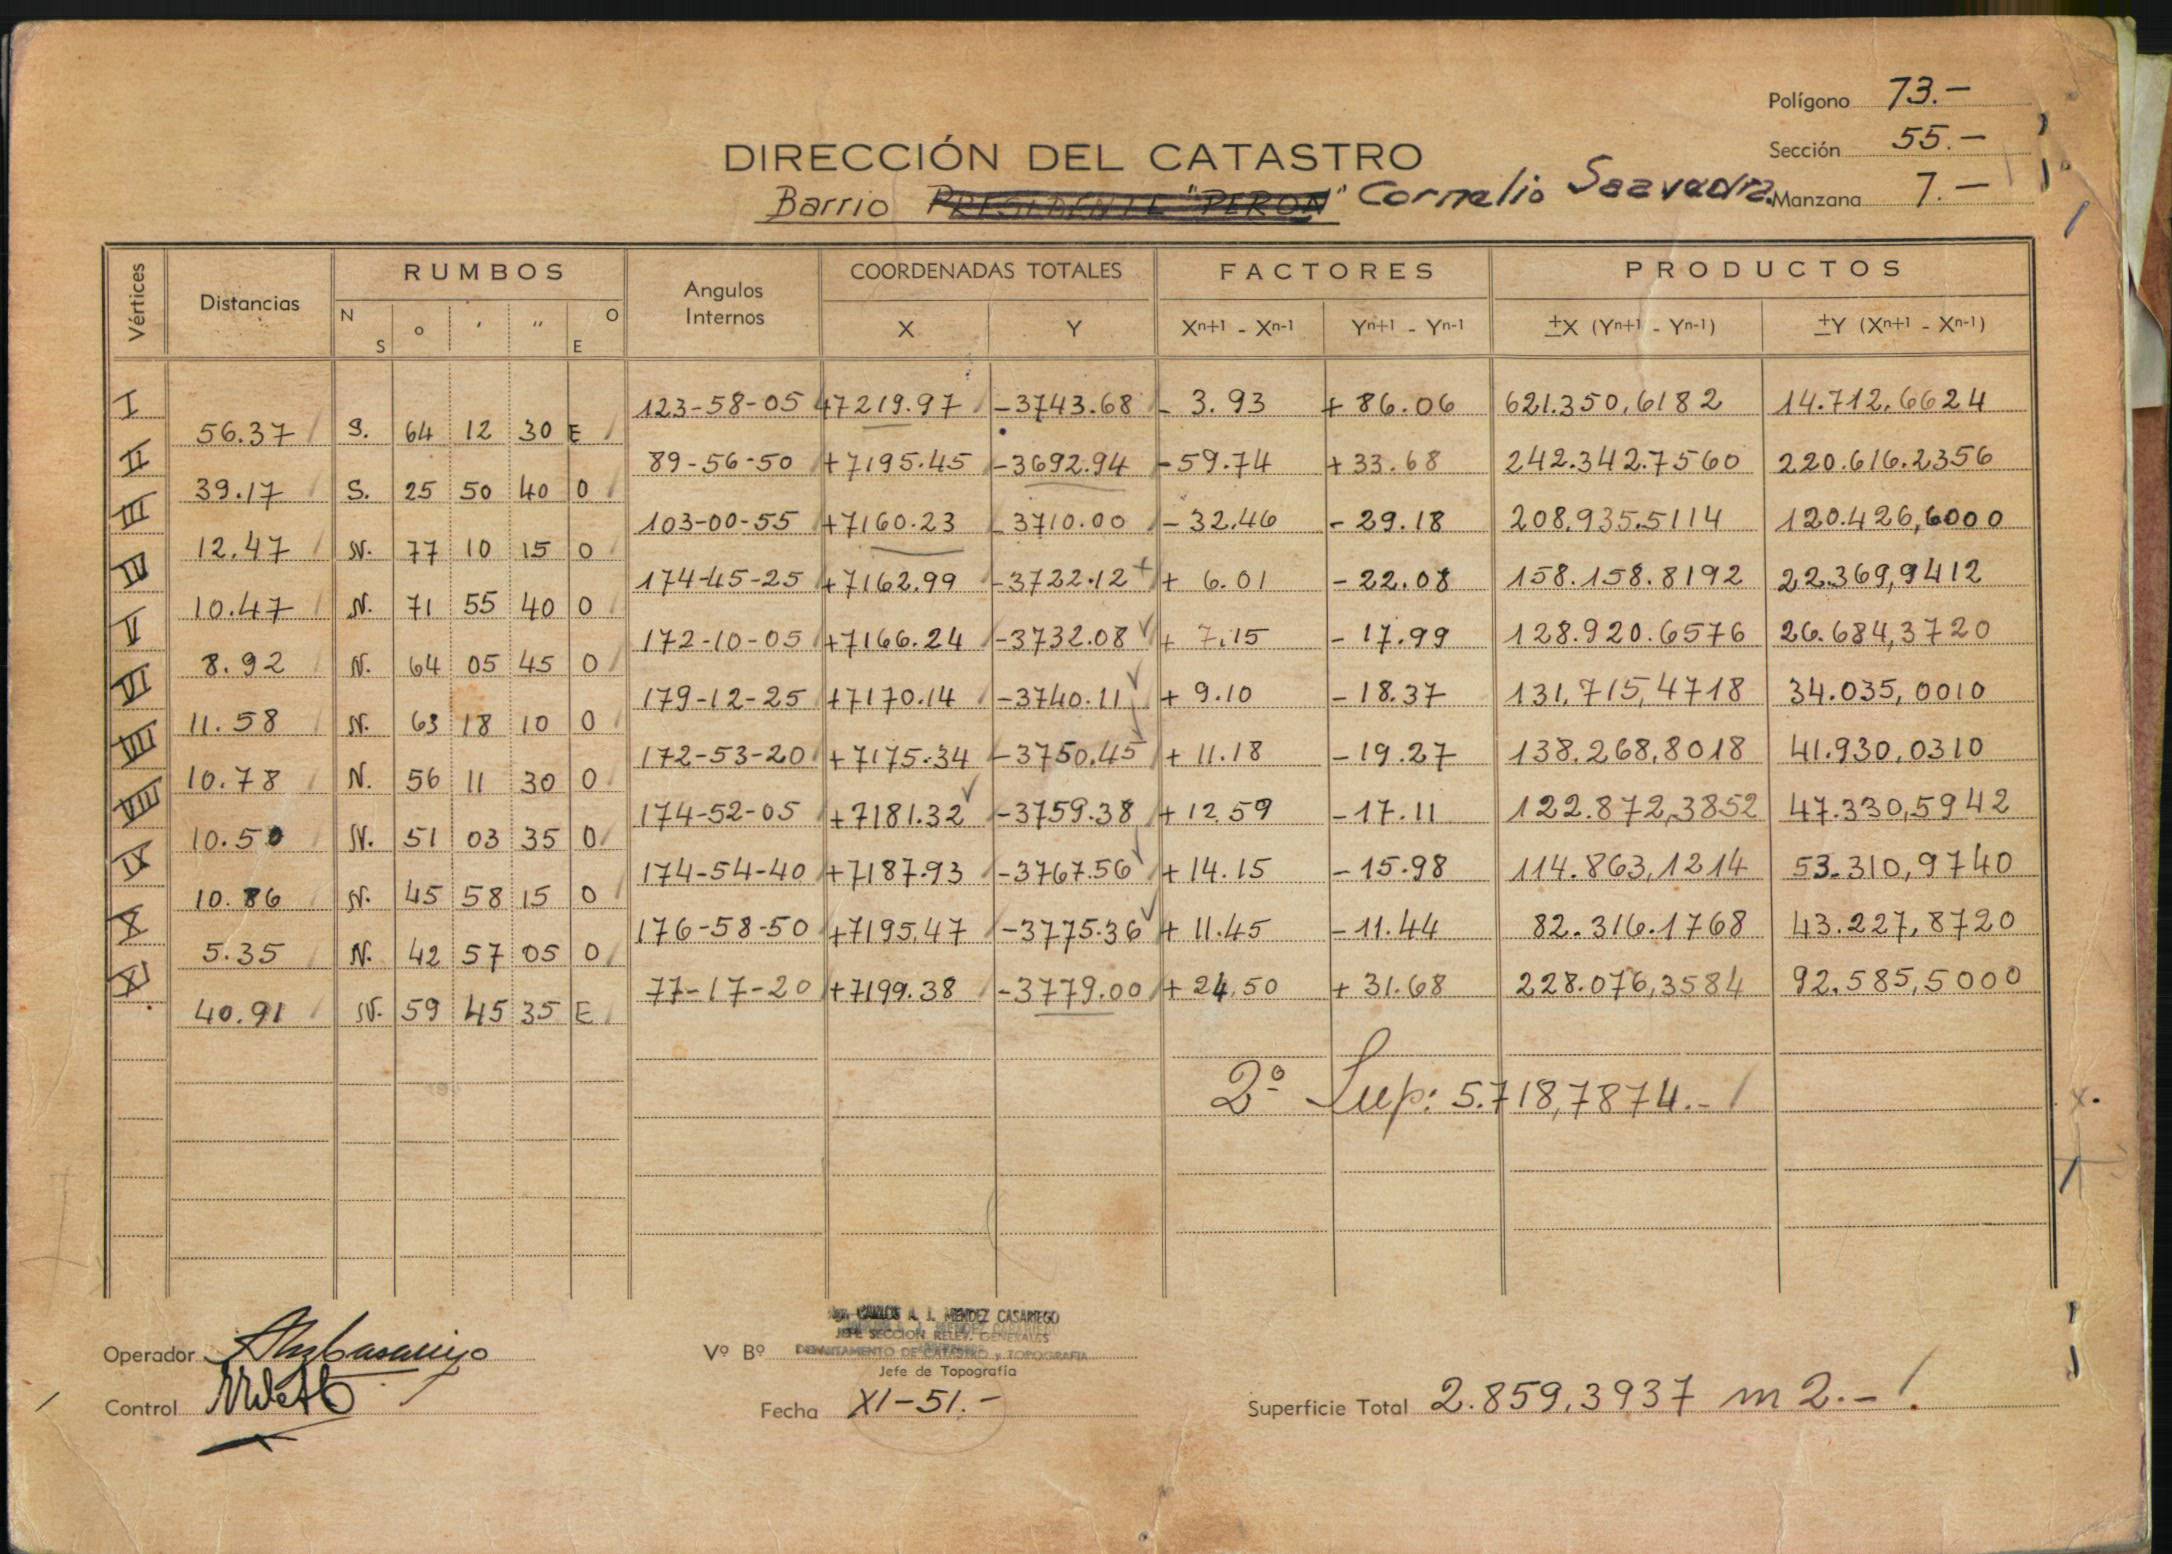 Polígono 73.-
Sección 55.-
Manzana 7.-
DIRECCIÓN DEL CATASTRO
Barrio PRESIDENTE "PERON" Cornelio Saavedra
Vértices Distancias RUMBOS Angulos Internos COORDENADAS TOTALES FACTORES PRODUCTOS
N S ° ' " O E X Y Xn+1 - Xn-1 Yn+1 - Yn-1 ±X (Yn+1 - Yn-1) ±Y (Xn+1 - Xn-1)
I 123-58-05 +7219.97 -3743.68 - 3.93 + 86.06 621.350,6182 14.712,6624
56.37 S. 64 12 30 E
II 89-56-50 +7195.45 -3692.94 -59.74 +33.68 242.342.7560 220.616.2356
39.17 S. 25 50 40 O
III 103-00-55 +7160.23 -3710.00 -32.46 -29.18 208.935.5114 120.426,6000
12.47 N. 77 10 15 O
IV 174-45-25 +7162.99 -3722.12 + 6.01 -22.08 158.158.8192 22.369,9412
10.47 N. 71 55 40 O
V 172-10-05 +7166.24 -3732.08 + 7.15 -17.99 128.920.6576 26.684,3720
8.92 N. 64 05 45 O
VI 179-12-25 +7170.14 -3740.11 + 9.10 -18.37 131.715,4718 34.035,0010
11.58 N. 63 18 10 O
VII 172-53-20 +7175.34 -3750.45 + 11.18 -19.27 138.268,8018 41.930,0310
10.78 N. 56 11 30 O
VIII 174-52-05 +7181.32 -3759.38 + 12.59 -17.11 122.872,3852 47.330,5942
10.50 N. 51 03 35 O
IX 174-54-40 +7187.93 -3767.56 + 14.15 -15.98 114.863,1214 53.310,9740
10.86 N. 45 58 15 O
X 176-58-50 +7195.47 -3775.36 + 11.45 -11.44 82.316.1768 43.227,8720
5.35 N. 42 57 05 O
XI 77-17-20 +7199.38 -3779.00 + 24.50 + 31.68 228.076,3584 92.585,5000
40.91 N. 59 45 35 E
2º Sup: 5.718,7874.-
CARLOS A. J. MENDEZ CASARIEGO
JEFE SECCION RELEV. GENERALES
Operador Vº Bº DEPARTAMENTO DE CATASTRO y TOPOGRAFIA
Jefe de Topografía
Control Fecha XI-51.- Superficie Total 2.859,3937 m2.-